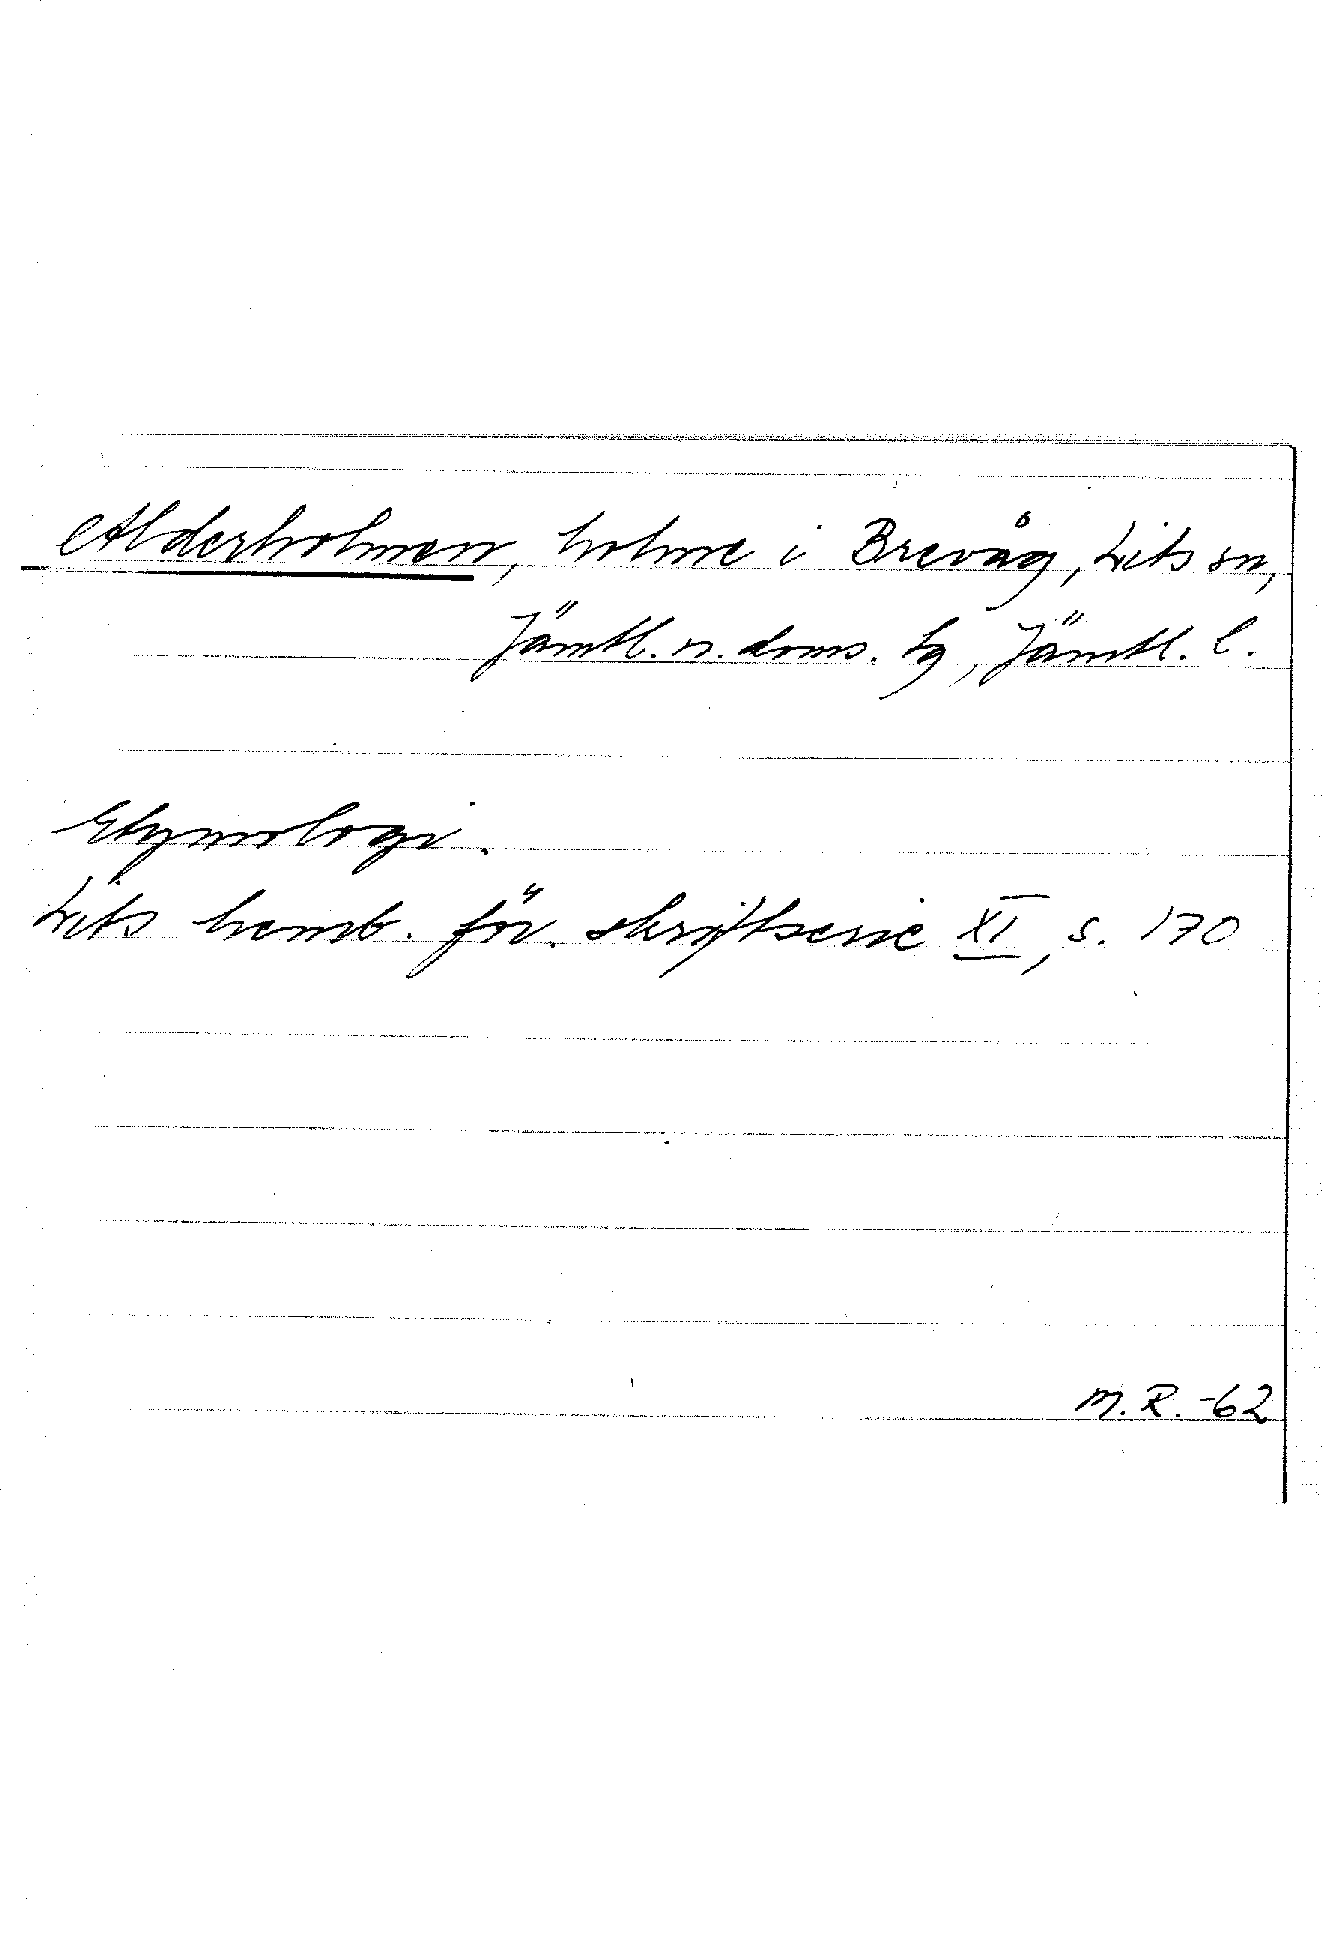 Alderholmen, holme i Brevåg, Lits sn,
Jämtl. n. doms. tg, Jämtl. l.
Etymologi.
Lits hemb. för. skriftserie XI, s. 170
M.R. -62